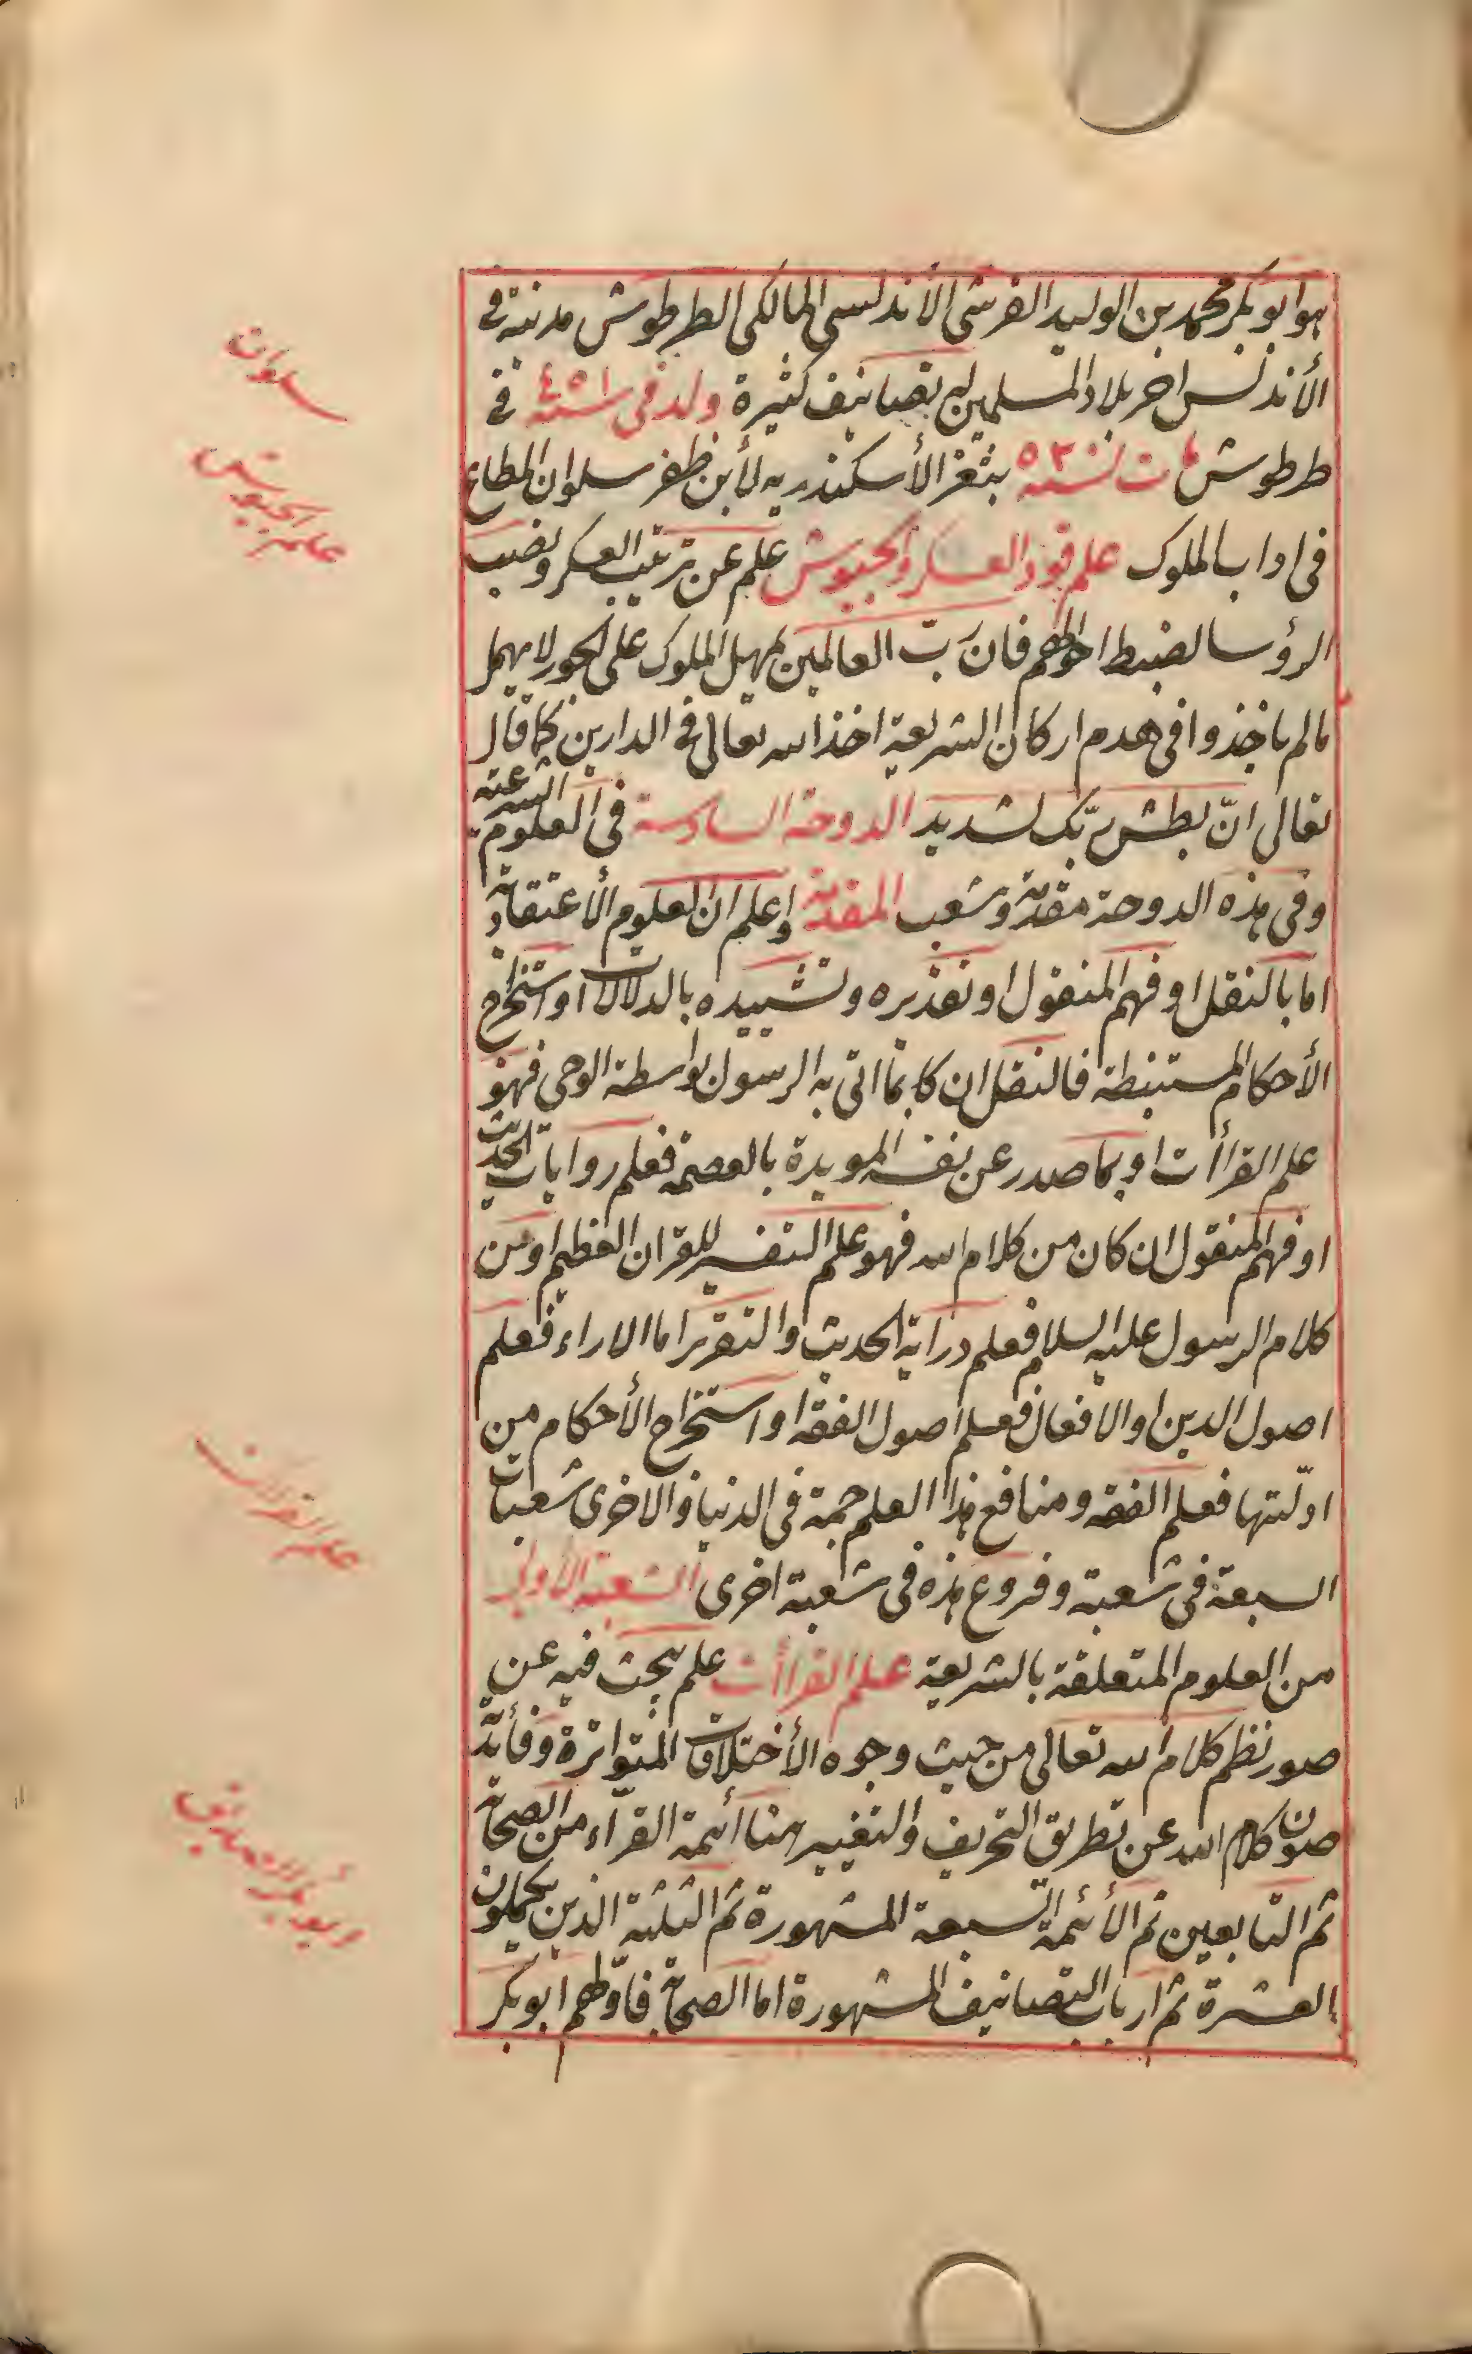 هو ابو بكر محمد بن الوليد القرشى الأندلسى المالكى الطرطوش مدينة فى
الأندلس اخر بلاد المسلمين له تصانيف كثيرة ولد فى سنة ٤٥١ فى
طرطوش مات سنة ٥٢٠ بثغر الأسكندريه لأبن ظفر سلوان المطاع
فى اداب الملوك علم قود العسكر والجيوش علم عن ترتيب العسكر ونصب
الرؤسا لضبط احوالهم فان ربّ العالمين يمهل الملوك على الجور لا يهمل
مالم ياخذوا فى هدم اركان الشريعة اخذ الله تعالى فى الدارين كما قال
تعالى انّ بطش ربّك لشديد الدوحة السادسة فى العلوم الشرعية
وفى هذه الدوحة مقدمة وشعب المقدمة واعلم ان العلوم الأعتقادية
اما بالنقل او فهم المنقول او تقريره وتشييده بالدلالات او استخراج
الأحكام المستنبطة فالنقل ان كان بما اتى به الرسول بواسطة الوحى فهو
علم القراأت او بما صدر عن نفسه المويدة بالعصمة فعلم روايات الحديث
او فهم المنقول ان كان من كلام الله فهو علم التفسير للقران العظيم او من
كلام الرسول عليه السلام فعلم دراية الحديث والتقرير اما الاراء فعلم
اصول الدين او الافعال فعلم اصول الفقه او استخراج الأحكام من
ادلّتها فعلم الفقه ومنافع هذا العلم جمة فى الدنيا والاخرى شعبات
السبعة فى شعبة وفروع هذه فى شعبة اخرى الشعبة الأولى
من العلوم المتعلقة بالشريعة علم القراأت علم يبحث فيه عن
صور نظم كلام الله تعالى من حيث وجوه الأختلافات المتواترة وفأيدته
صون كلام الله عن تطريق التحريف والتغيير هنا أئمة القرآء من الصحابة
ثم التابعين ثم الأئمة السبعة المشهورة ثم الثلثة الذين يكملون
العشرة ثم ارباب التصانيف المشهورة اما الصحابة فاولهم ابو بكر
سلوان
علم الجيوش
علم القراات
ابو بكر الصديق